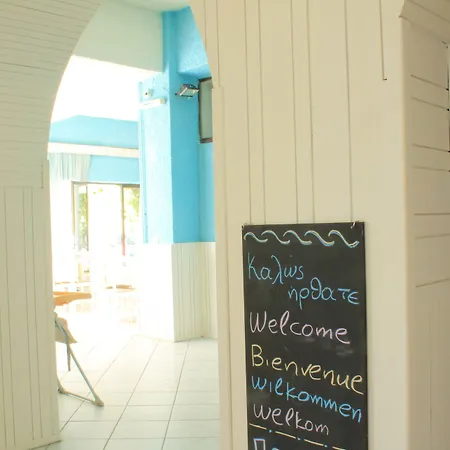 Καλώς
ήρθατε
Welcome
Bienvenue
wilkommen
welkom